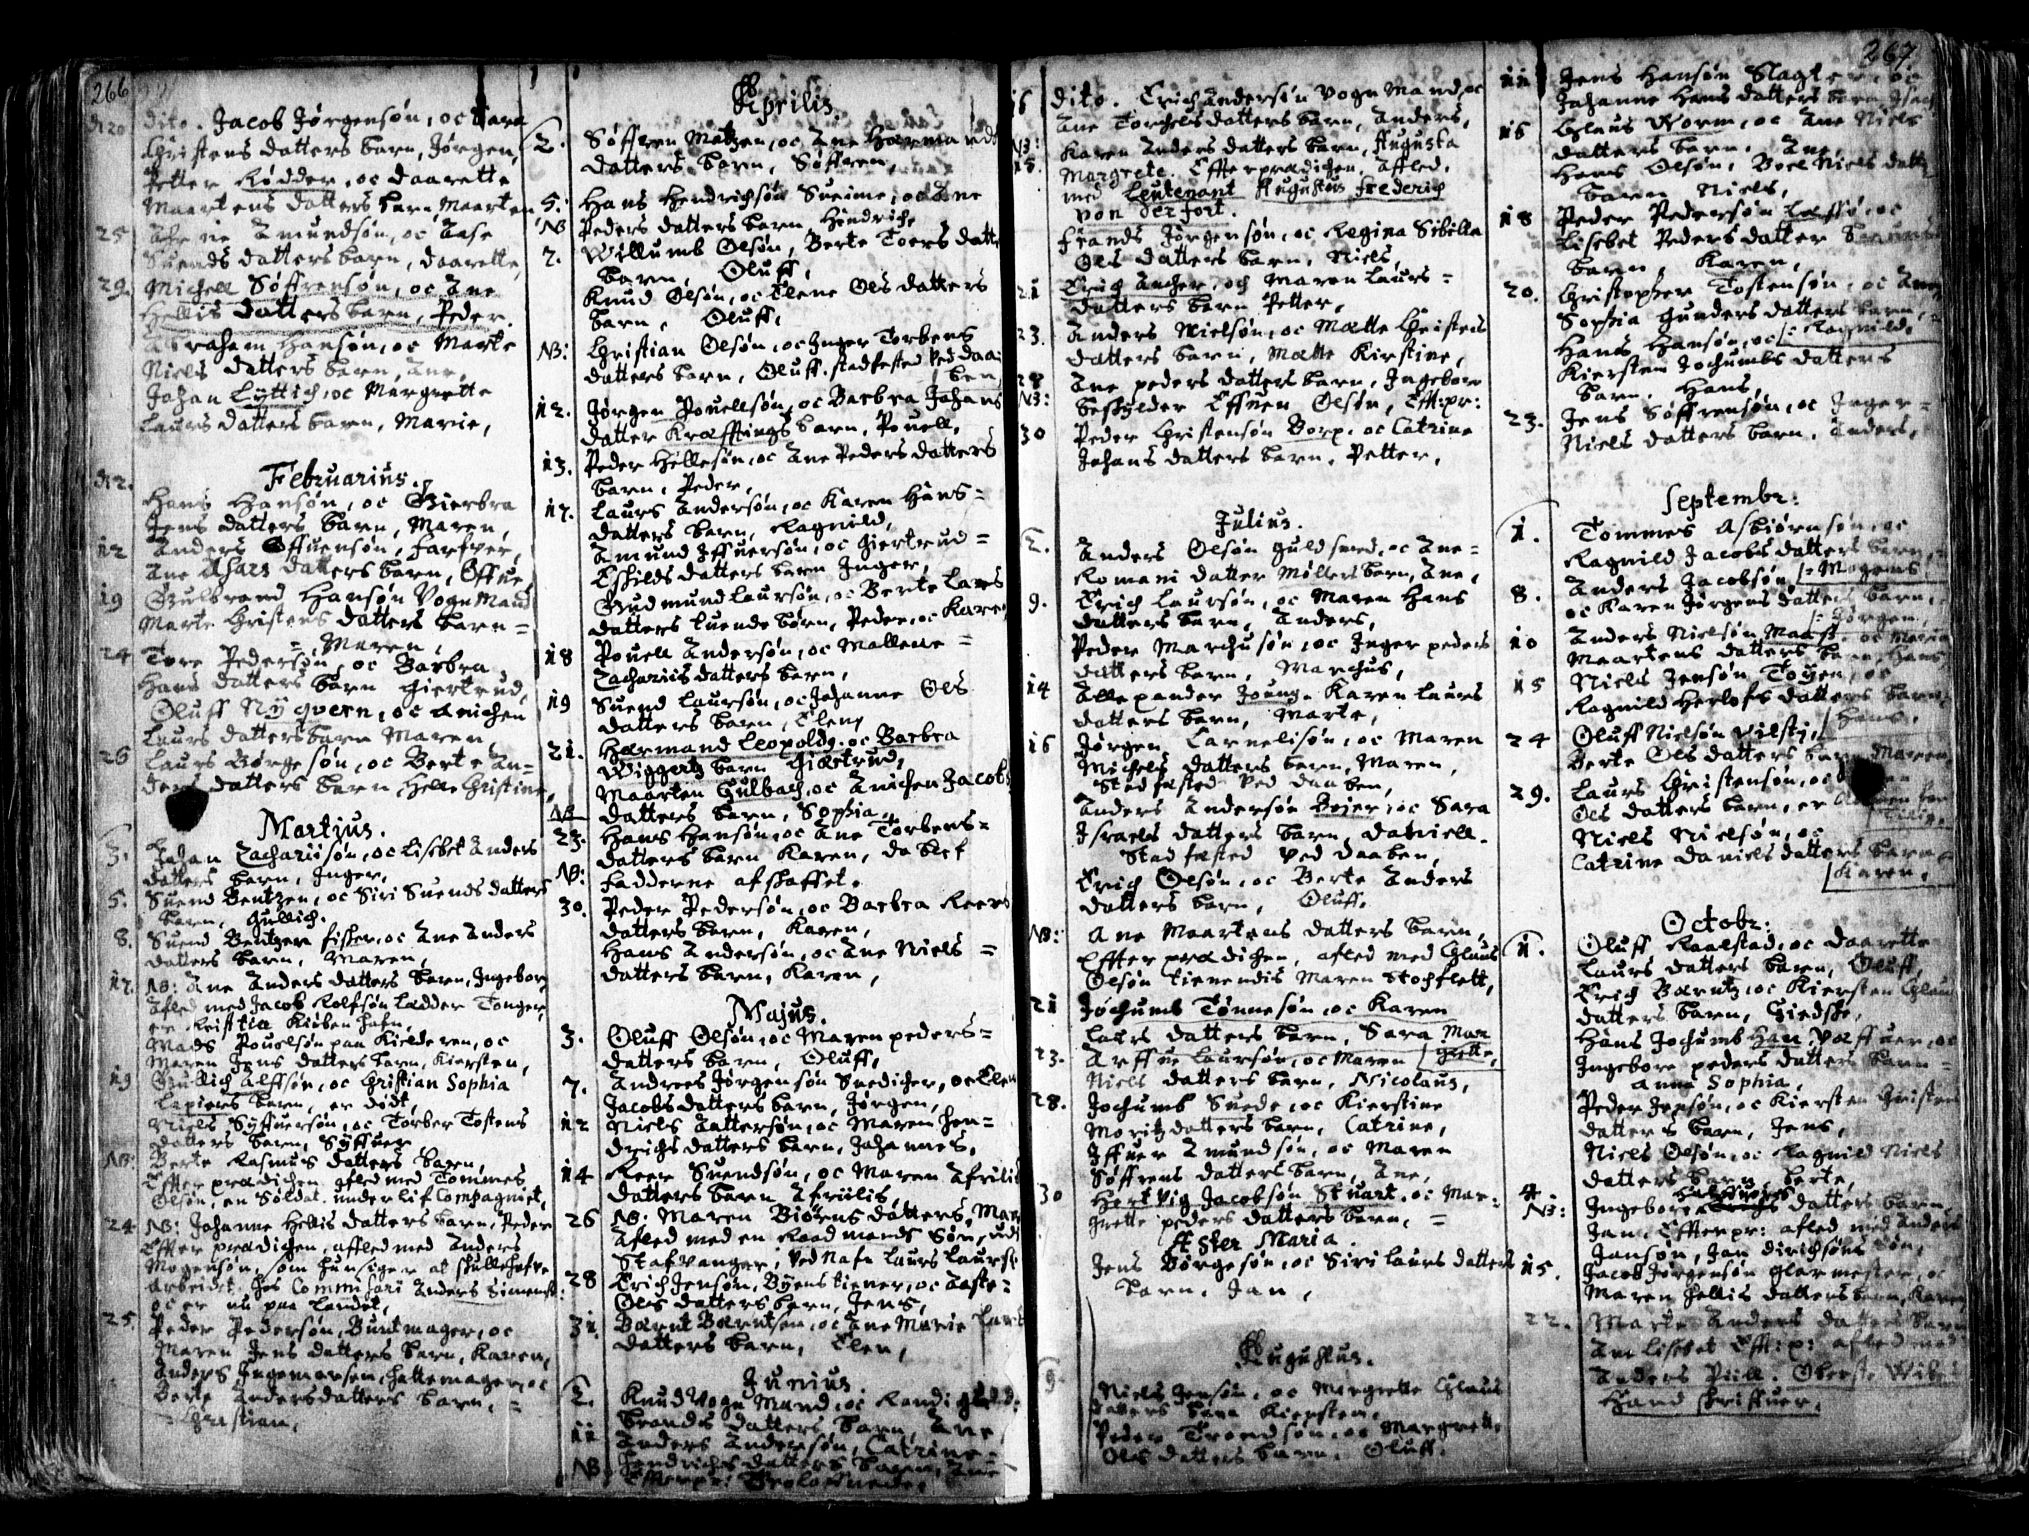 266
d 20 dito. Jacob Jørgensøn, oc
Christens datters barn, Jørgen,
Petter Rødder, oc daarette
Maartens datters barn, Maarten
25 Amundsøn, oc Aase
Suends datters barn, daarette,
29. Michell Søffrensøn, oc Ane
Hellis datters barn, Peder.
Abraham Hansøn, oc Marte
Niels datters barn, Ane,
Johan Lyttich, oc Margrette
Laurs datters barn, Marie,
Februarius.
d 2. Hans Hansøn, oc Gierbra
Jens datters barn, Maren,
12 Anders Effuensøn, farfver,
Ane datters barn, Effue,
19 Gulbrand Hansøn Vogn Mand
Marte Christens datters barn =
= Maren,
24 Tore Pedersøn, oc Barbra
Hans datters barn Giertrud,
Oluff Nÿ qvern, oc Anichen
Laurs datters barn Maren
26 Laurs Børgesøn, oc Berte An=
ders datters barn, Helle Christine,
Martius.
3. Johan Zachariisøn, oc Lisebet Anders
datters barn, Inger,
5. Suend Bentzen, oc Siri Suends datters
barn, Gullich.
8. Suend Bentzen fisker, oc Ane Anders
datters barn, Maren,
17. NB: Ane Anders datters barn, Ingebor,
Afled med Jacob Rolfsøn Ladder Tonger,
er Kiøbenhafn,
Mads Pouelsøn paa Kielderen, oc
Maren Jens datters barn, Kiersten,
19 Gullich Alffsøn, oc Christian Sophia
Lapiers barn, er dødt,
Niels Syffuersøn, oc Torber Tostens
datters barn, Syffuer
NB: Berte Rasmus datters barn,
Effter prædichen, afled med Tommes
Olsøn, en Soldat under lif Compagniet,
24 NB: Johanne Hellis datters barn, Peder
Effter prædichen, affled med Anders
Mogensøn, som hun siger at skulle hafve
Arbeidt hos Commisari Anders Simensø:
oc er nu paa landet,
25. Peder Pedersøn, Buntmager, oc
Maren Jens datters barn, Karen,
Anders Ingemarsen, hattemager, oc
Berte Anders datters barn, =
= Christian,
Aprilis.
2. Søffren Matzen, oc Ane Harmands
datters barn, Søffren,
5. Hans Hendrichsøn Sueime, oc Ane
NB Peders datters barn, Hendrich,
7. Willumb Olsøn, Berte Toers datters
barn, Oluff,
Knud Olsøn, oc Elene Ols datters
barn, Oluff,
NB: Christian Olsøn, oc Inger Torbens
datters barn, Oluff. stadfested ved daa-
ben,
12. Jørgen Pouellsøn, oc Barbra Johans
datter Kræfftings barn, Pouell,
13. Peder Hellesøn, oc Ane Peders datters
barn, Peder,
17. Laurs Andersøn, oc Karen Hans=
datters barn, Ragnild,
Amund Iffuersøn, oc Giertrud=
Eskilds datters barn Inger,
Gudmund Laursøn, oc Berte Lars
datters tuende børn, Peder, oc Karen
18 Pouell Andersøn, oc Mallene =
Zachariis datters barn,
19 Suend Laursøn, oc Johanne Ols
datters barn, Elen,
21. Harmand Leopoldg. oc Barbra
Wiggertz barn Giertrud,
Maarten Gulbach, oc Anichen Jacobs
NB datters barn, Sophia,
23. Hans Hansøn, oc Ane Torbens=
datters barn Karen, da blef
NB: fadderne afskaffet.
30. Peder Pedersøn, oc Barbra Reers
datters barn, Karen,
Hans Andersøn, oc Ane Niels =
datters barn, Karen,
Majus.
3. Oluff Olsøn, oc Maren peders=
datters barn, Oluff,
7. Andrees Jørgensøn Snedicher, oc Elen
Jacobs datters barn, Jørgen,
12 Niels Lattersøn, oc Maren Hen=
drichs datters barn, Johannes,
14 Reer Suendsøn, oc Maren Afrilis
datters barn Afriilis,
26 NB: Maren Biørns datters,
Afled med en Raadmands Søn, udi
Stafvanger, ved Nafn Laurs Laurs
28 Erich Jensøn, Byens tiener, oc Aaste=
Ols datters barn, Jens,
31. Barnt Barntsen, oc Ane Marie
datters barn, Elen,
Junius
2. Knud Vogn Mand, oc Randi
brands datters barn, Ane
11 Anders Andersøn, Catrine =
NB Hendrichs datters barn, Ane
Effterpr:
267
16 dito. Erich Andersøn Vogn Mand, oc
Ane Torchels datters barn, Anders,
NB: Karen Anders datters barn, Augusta
18. Margrete. Effterprædichen, Affled,
med Leutenant Augustus Frederich
von der fort.
Frands Jørgensøn, oc Regina Sibilla
Ols datters barn, Niels,
21 Erich Ancher, och Maren Laurs=
datters barn Petter,
23. Anders Nielsøn, oc Mætte Christens
datters barn, Mætte Kirstine,
28 Ane peders datters barn, Ingebor
NB: beskylder Effuen Olsøn, Efft:pr:
30 Peder Christensøn Borp. oc Catrine
Johans datters barn, Petter,
Julius.
2. Anders Olsøn guldsmed, oc Ane=
Romani datter Møllers barn, Ane,
9. Erich Laursøn, oc Maren Hans
datters barn, Anders,
Peder Marchusøn, oc Inger peders
datters barn, Marchus,
14 Allexander Joung. Karen Laurs
datters barn, Marte,
16 Jørgen Carnelisøn, oc Maren
Michels datters barn, Maren,
Stadfæsted ved daaben,
Anders Andersøn Beier, oc Sara
Israels datters barn, Daniell.
Stadfæsted ved daaben,
Erich Olsøn, oc Berte Anders
datters barn, Oluff.
NB: Ane Maartens datters barn,
Effter prædichen, afled med Claus
Olsøn tienendis Maren Stochflett,
21 Jochumb Tønnesøn, oc Karen
Laurs datters barn, Sara Mar
grette,
23. Arffue Laursøn, oc Maren
Niels datters barn, Nicolaus,
28. Jochumb Suede, oc Kierstine
Moritz datters barn, Catrine,
Iffuer Amundsøn, oc Maren
Søffrens datters barn, Ane,
30 Hertvig Jacobsøn Stuart. oc Mar=
grette peders datters barn, =
Æster Maria.
Jens Børgesøn, oc Siri Laurs datters
barn, Jan,
Augustus.
9. Niels Jensøn, oc Margrette Claus
datters barn Kiersten,
Peder Troendsøn, oc Margrette
Ols datters barn, Oluff.
11 Jens Hansøn Slagter oc
Johanne Hans datters barn
16 Claus Worm, oc Ane Niels
datters barn, Ane,
Hans Olsøn, Boel Niels datters
barn Niels,
18 Peder Pedersøn Læssø, oc
Lisebet Peders datter
barn, Karen,
20. Christopher Tostensøn, oc Ane
Sophia Gunders datters barn,
Ragnild,
Hans Hansøn, oc
Kiersten Jochumbs datters
barn, Hans,
23. Jens Søffrensøn, oc Inger=
Niels datters barn, Anders,
Septembr:
1. Tommes Asbiørnsøn, oc
Ragnild Jacobs datters barn,
Mogens
8. Anders Jacobsøn,
oc Karen Jørgens datters barn,
Jørgen,
10 Anders Nielsøn Maasf. oc Maria
Maartens datters barn Hans
15 Niels Jensøn, Toyen, oc
Ragnild Herlofs datters barn
Hans,
24 Oluff Nielsøn Vilsti,
Berte Ols datters barn Maren
29. Laurs Christensøn, oc
Ols datters barn, er
Niels Nielsøn, oc
Catrine Daniels datters barn
Karen,
Octobr:
1. Oluff Raalstad, oc daarette
Laurs datters barn, Oluff,
Erich Barntz, oc Kiersten Claus
datters barn, Giedske,
Hans Jochumb Han, Væffuer, oc
Ingebor peders datters barn =
Anna Sophia,
Peder Jensøn, oc Kiersten Christens
datters barn, Jens,
Niels Olsøn, oc Ragnild Niels
datters barn berte,
4. Ingebor datters barn,
NB: Jan. Effterpr: afled med Anders
Jansøn, Jan dirichsøns søn,
15. Jacob Jørgensøn glarmester, oc
Maren Hellis datters barn, Karen
22. Marte Anders datters barn
Ane Lisebet Efft:p: afled med
Anders Piill. Oberste Wibe
Hand skriffuer,